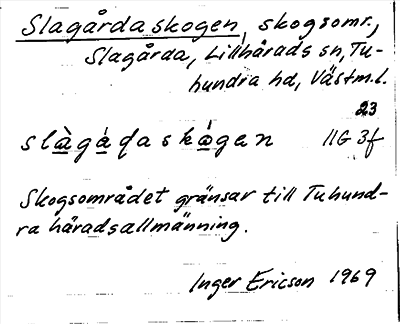 Slagårdaskogen, skogsomr.,
Slagårda, Lillhärads sn, Tu-
hundra hd, Västm.l.
23
slàgáɖaskágen 11G 3f
Skogsområdet gränsar till Tuhund-
ra häradsallmänning.
Inger Ericson 1969